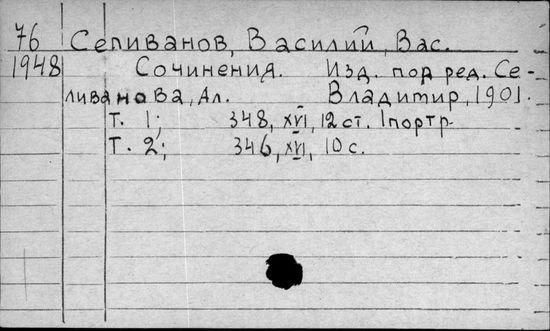 76 Селиванов, Василий, Вас.
1948 Сочинения. Изд. под ред. Се-
ливанова, Ал. Владимир, 1901.
Т. 1; 348, XVI, 12 ст. 1 портр.
Т. 2; 346, XVI, 10 с.